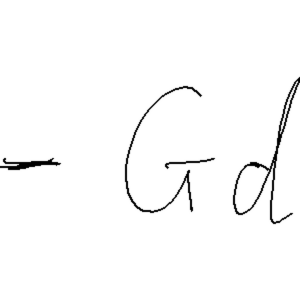 - Gd